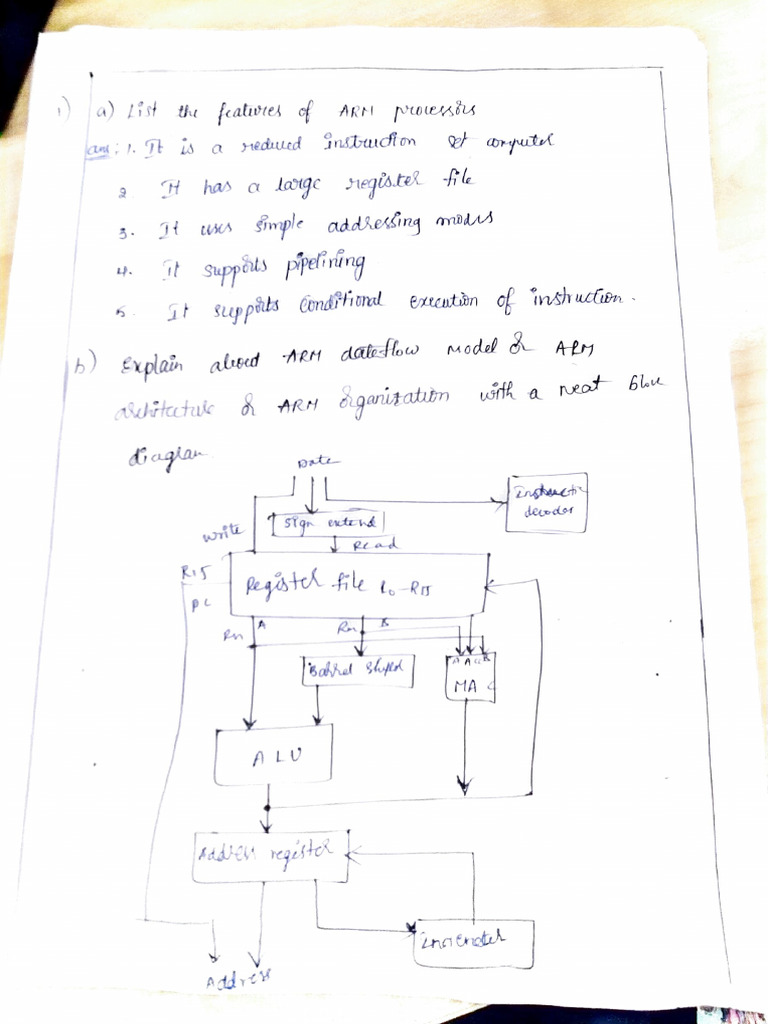 1) a) List the features of ARM processors
ans: 1. It is a reduced instruction set computer
2. It has a large register file
3. It uses simple addressing modes
4. It supports pipelining
5. It supports conditional execution of instruction.
b) Explain about ARM dataflow model or ARM
architecture or ARM organization with a neat block
diagram
Data
Instruction
decoder
sign extend
write
Read
R15
PC
Register file R0-R15
A
B
Rn
Rm
Barrel
A Acc B
MAC
ALU
Address register
Address